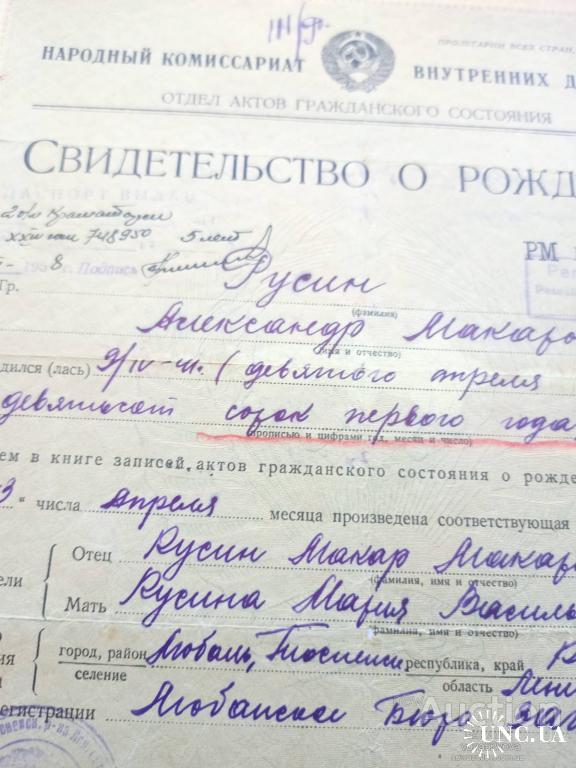 ПРОЛЕТАРИИ ВСЕХ СТРАН,
НАРОДНЫЙ КОМИССАРИАТ ВНУТРЕННИХ Д
ОТДЕЛ АКТОВ ГРАЖДАНСКОГО СОСТОЯНИЯ
СВИДЕТЕЛЬСТВО О РОЖД
748950 5 лет
РМ
8 г. Подпись
Гр. Русин
(фамилия)
Александр Макаро
имя и отчество)
одился (лась) 9/IV-41. (девятого апреля
девятьсот сорок первого года
прописью и цифрами год, месяц и число)
ем в книге записей актов гражданского состояния о рожде
3 " числа Апреля месяца произведена соответствующая
Отец Русин Макар Макаро
(фамилия, имя и отчество)
ели
Мать Русина Мария Василь
фамилия, имя и отчество)
город, район Любань, республика, край
селение область Лени
егистрации Любанское Бюро ЗАГС
UNC.UA